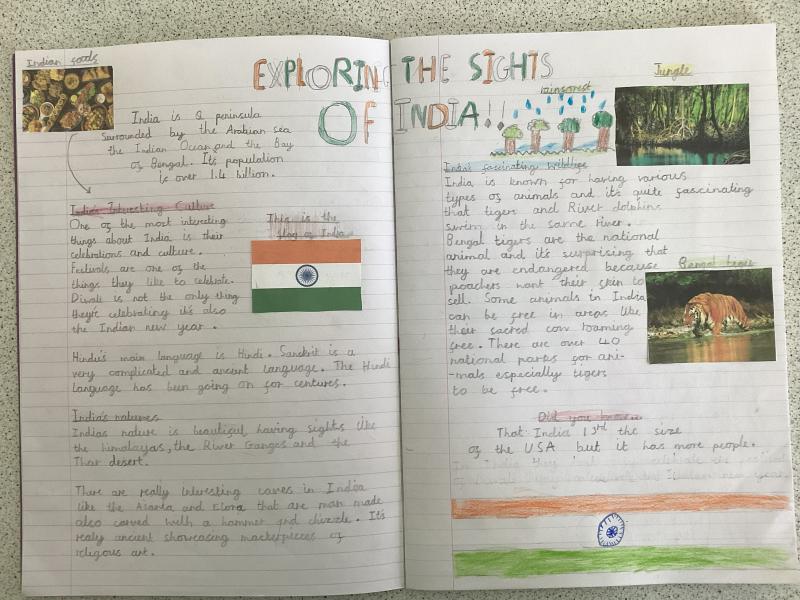 Indian foods
EXPLORING THE SIGHTS
OF INDIA!!
India is a peninsula
surrounded by the Arabian sea
the Indian Ocean and the Bay
of Bengal. It's population
is over 1.4 billion.
India's Interesting Culture
One of the most interesting
things about India is their
celebrations and culture.
Festivals are one of the
things they like to celebrate.
Diwali is not the only thing
they're celebrating it's also
the Indian new year.
This is the
flag of India
Hindie's main language is Hindi. Sanskrit is a
very complicated and ancient language. The Hindi
language has been going on for centures.
India's natures
Indias nature is beautiful having sights like
the himalayas, the River Ganges and the
Thar desert.
There are really interesting caves in India
like the and Elora that are man made
also carved with a hammer and chizzle. It's
realy ancient showcasing masterpieces of
religous art.
rainforest
Jungle
India's fascinating wildlife
India is known for having various
types of animals and it's quite fascinating
that tigers and River dolphins
swim in the same river.
Bengal tigers are the national
animal and it's surprising that
they are endangered because
poachers want their skin to
sell. Some animals in India
can be free in areas like
their sacred cow roaming
free. There are over 40
national parks for ani-
-mals especially tigers
to be free.
Bengal tiger
Did you know...
That India 1 3rd the size
of the USA but it has more people.